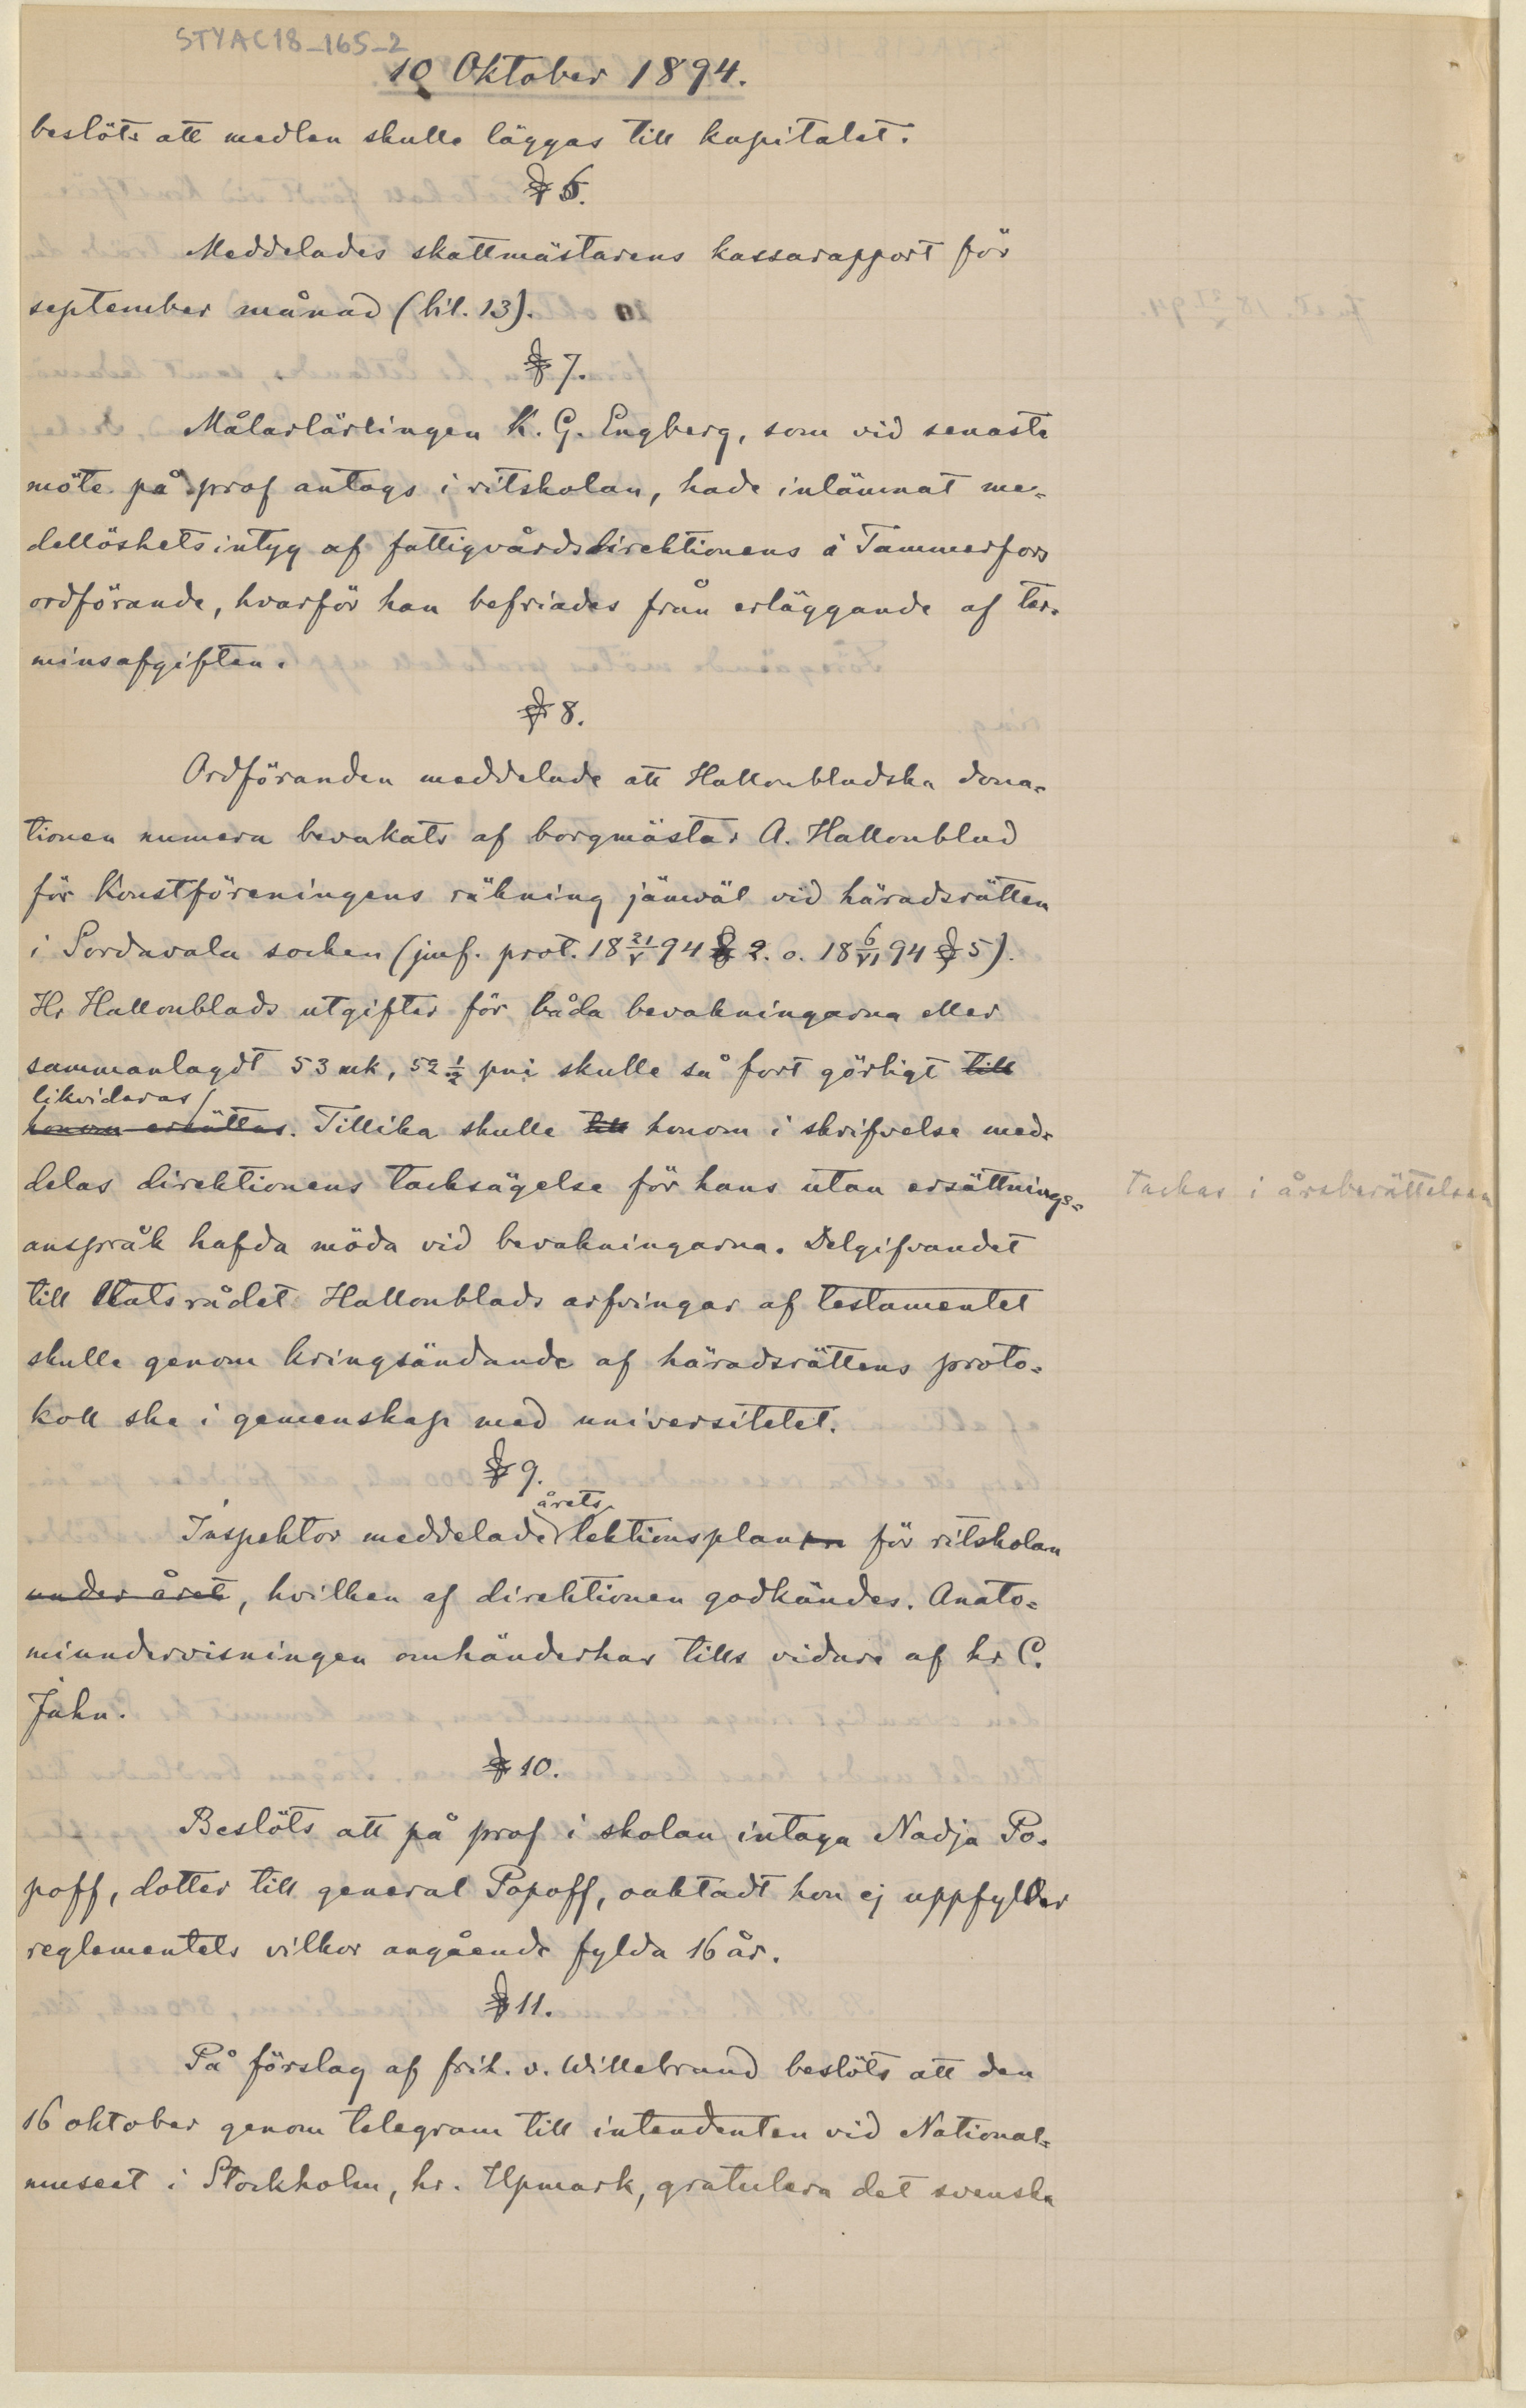 STYAC18_165_2
10 Oktober 1894.
beslöts att medlen skulle läggas till kapitalet.
§ 6.
Meddelades skattmästarens kassarapport för
september månad (bil. 13).
§ 7.
Målarlärlingen K. G. Engberg, som vid senaste
möte på prof antogs i ritskolan, hade inlämnat me-
dellöshetsintyg af fattigvårdsdirektionens i Tammerfors
ordförande, hvarför han befriades från erläggande af ter-
minsafgiften.
§ 8.
Ordföranden meddelade att Hallonbladska dona-
tionen numera bevakats af borgmästar A. Hallonblad
för Konstföreningens räkning jämväl vid häradsrätten
i Sordavala socken (jmf. prot. 18 21/V 94 § 2. o. 18 6/VI 94 § 5).
Hr Hallonblads utgifter för båda bevakningarna eller
sammanlagdt 53 mk, 52 1/2 pni skulle så fort görligt till
likvideras
honom ersättas. Tillika skulle till honom i skrifvelse med-
delas direktionens tacksägelse för hans utan ersättnings-
tackas i årsberättelsen
anspråk hafda möda vid bevakningarna. Delgifvandet
till Statsrådet Hallonblads arfvingar af testamentet
skulle genom kringsändande af häradsrättens proto-
koll ske i gemenskap med universitetet.
§ 9.
årets
Inspektor meddelade lektionsplanen för ritskolan
under året, hvilken af direktionen godkändes. Anato-
miundervisningen omhänderhar tills vidare af hr C.
Jahn.
§ 10.
Beslöts att på prof i skolan intaga Nadja Po-
poff, dotter till general Popoff, oaktadt hon ej uppfyller
reglementets vilkor angående fylda 16 år.
§ 11.
På förslag af frih. v. Willebrand beslöts att den
16 oktober genom telegram till intendenten vid National-
museet i Stockholm, hr. Upmark, gratulera det svenska